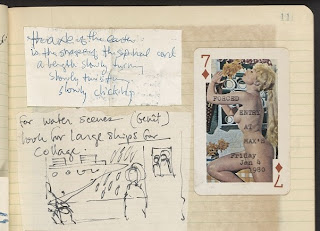 11
the axle of the earth
in the shape of the spinal cord
a length slowly turning
slowly twisting
slowly clicking
for water scenes (Genêt)
look for large ships for
collage.
7
FORCED
ENTRY
AT
MAX'S
Friday
Jan 4
1980
7